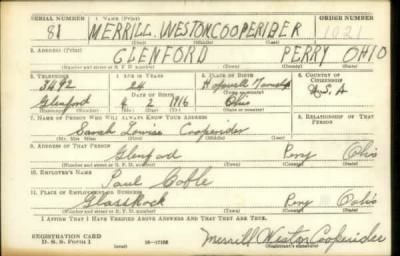 SERIAL NUMBER 1. NAME (Print) ORDER NUMBER
81 MERRILL WESTON COOPERIDER 1021
(First) (Middle) (Last)
2. ADDRESS (Print)
GLENFORD PERRY OHIO
(Number and street or R. F. D. number) (Town) (County) (State)
3. TELEPHONE 4. AGE IN YEARS 5. PLACE OF BIRTH 6. COUNTRY OF CITIZENSHIP
3492 24 Hopewell Township U.S.A
DATE OF BIRTH
Glenford 6 2 1916 Ohio
7. NAME OF PERSON WHO WILL ALWAYS KNOW YOUR ADDRESS 8. RELATIONSHIP OF THAT PERSON
Sarah Louise Cooperider
(Mr. Mrs. Miss) (First) (Middle) (Last)
9. ADDRESS OF THAT PERSON
Glenford Perry Ohio
(Number and street or R. F. D. number) (Town) (County) (State)
10. EMPLOYER'S NAME
Paul Coble
11. PLACE OF EMPLOYMENT OR BUSINESS
Glassrock Perry Ohio
(Number and street or R. F. D. number) (Town) (County) (State)
I AFFIRM THAT I HAVE VERIFIED ABOVE ANSWERS AND THAT THEY ARE TRUE.
REGISTRATION CARD
D. S. S. Form 1 (over) Merrill Weston Cooperider